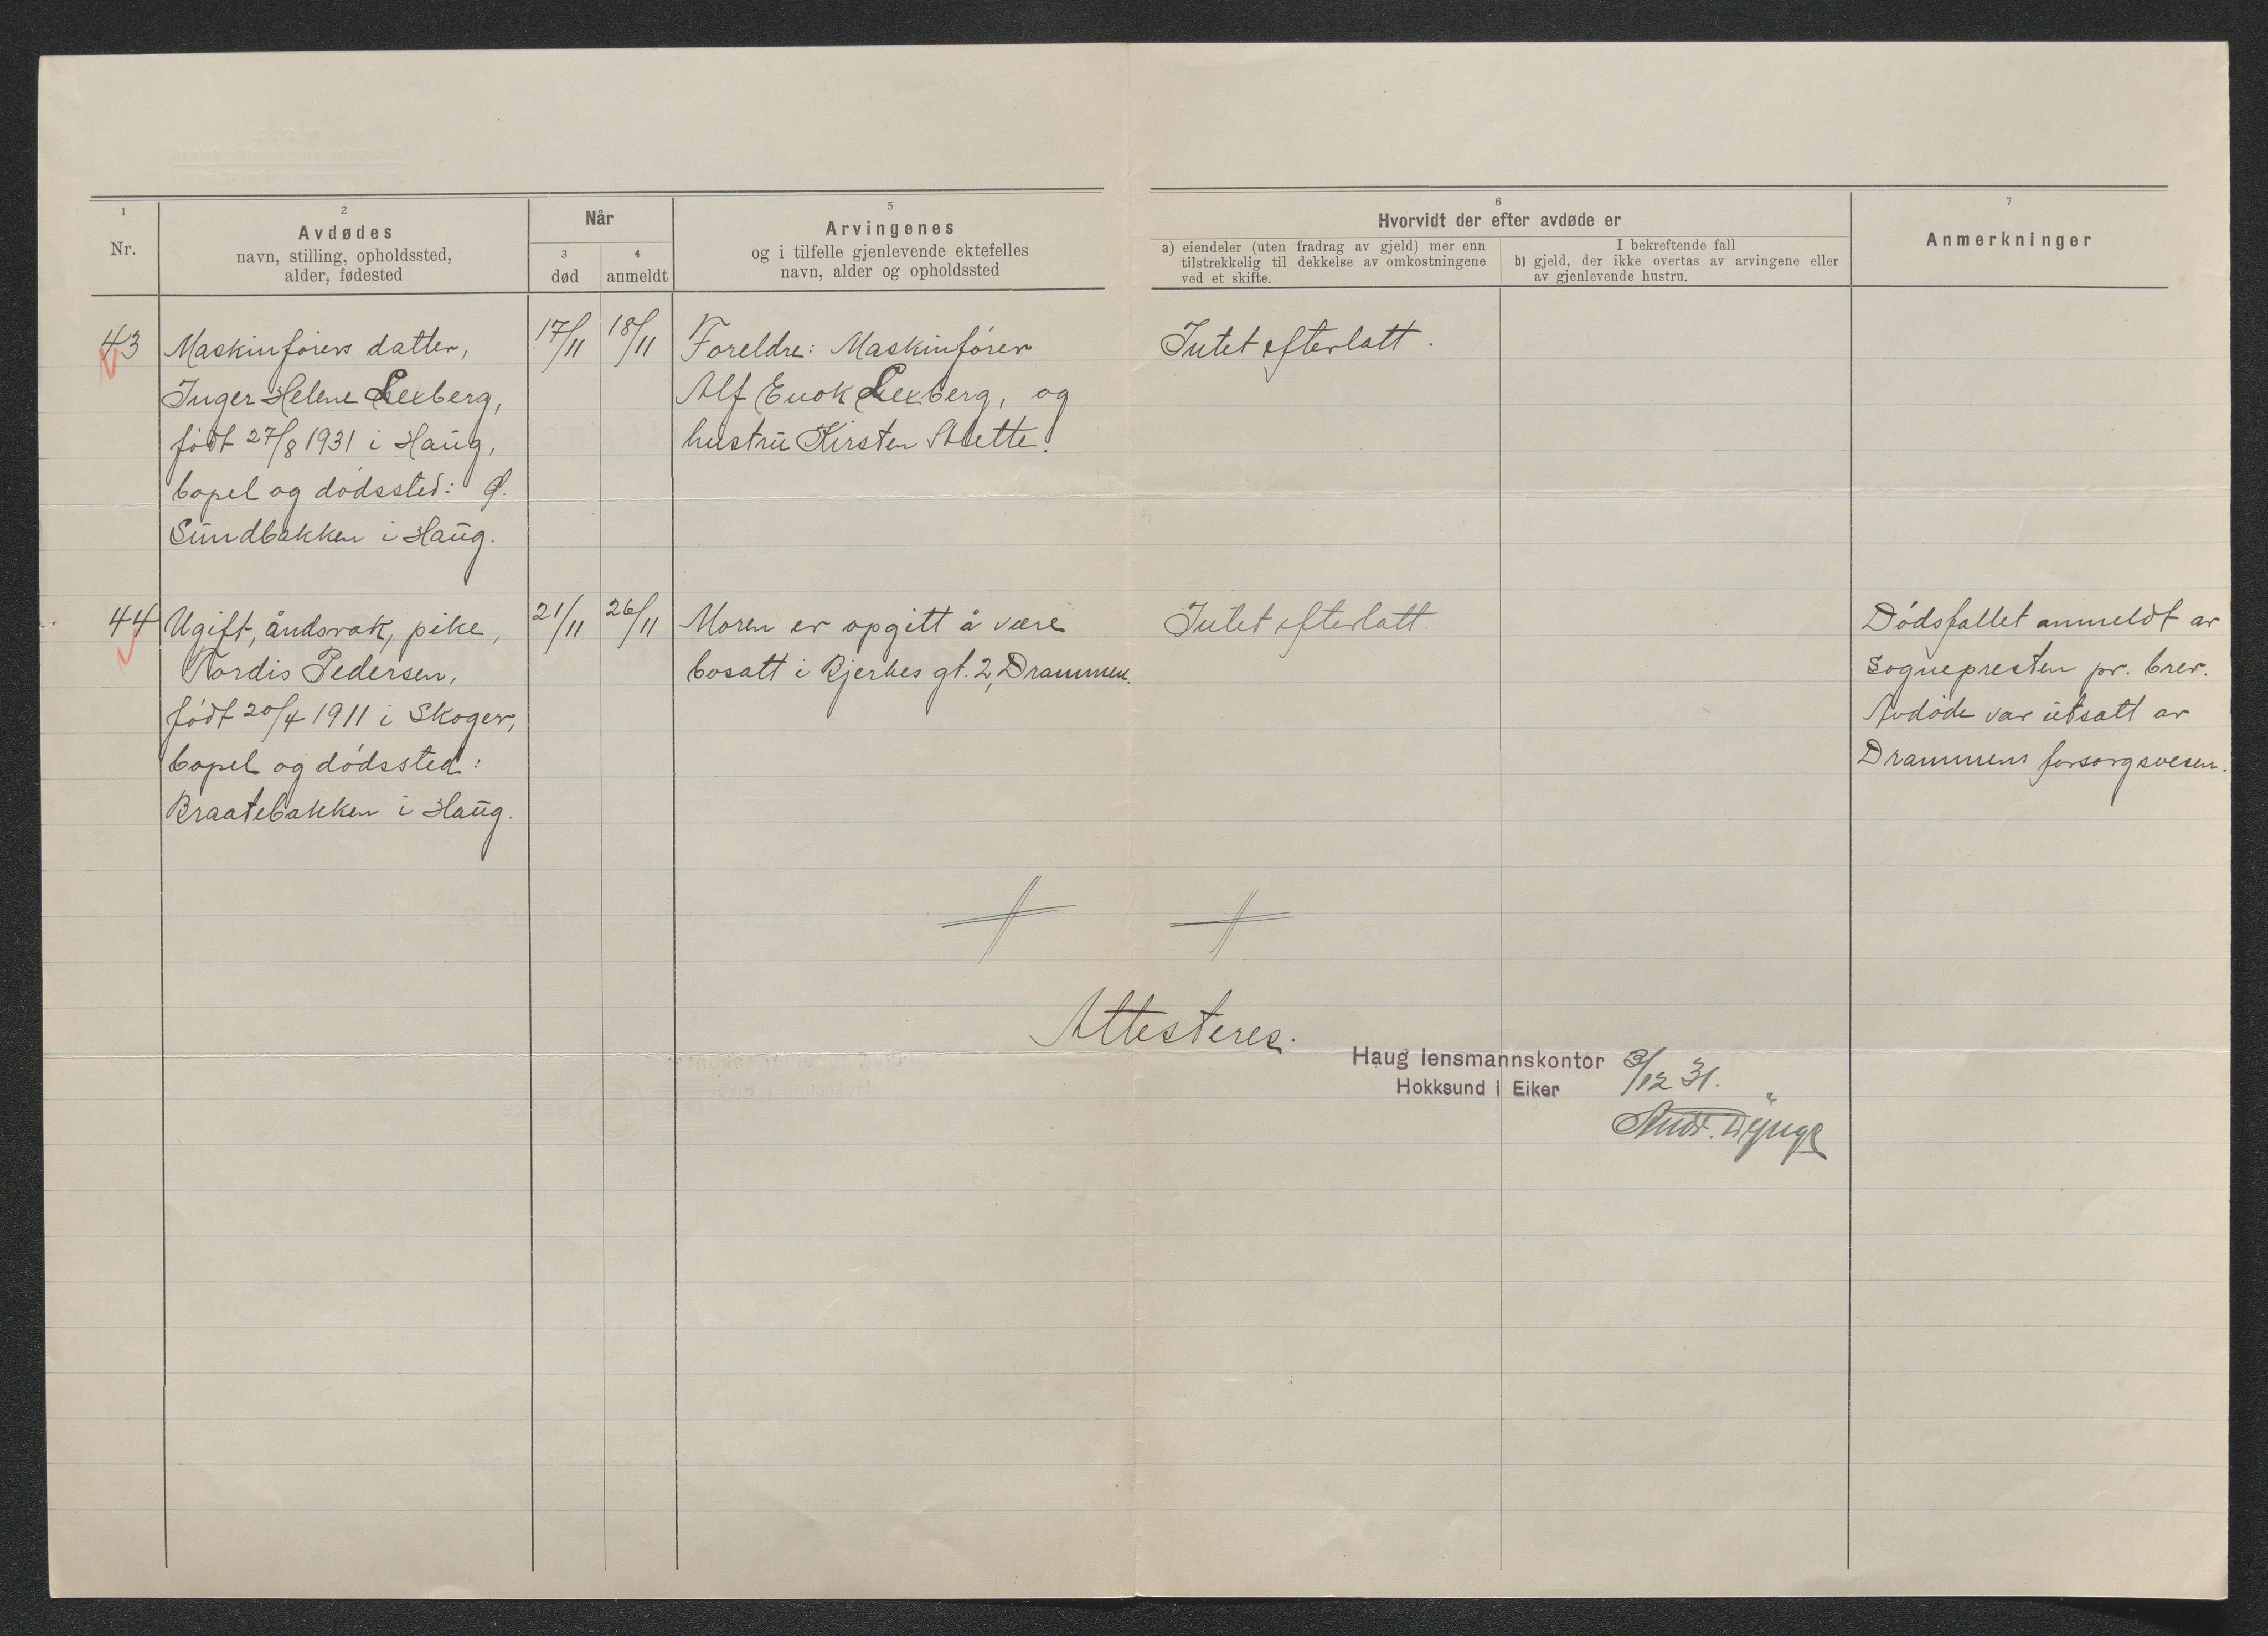 1
Nr.
2
Avdødes
navn, stilling, opholdssted,
alder, fødested
Når
3
død
4
anmeldt
5
Arvingenes
og i tilfelle gjenlevende ektefelles
navn, alder og opholdssted
6
Hvorvidt der efter avdøde er
a) eiendeler (uten fradrag av gjeld) mer enn
tilstrekkelig til dekkelse av omkostningene
ved et skifte.
I bekreftende fall
b) gjeld, der ikke overtas av arvingene eller
av gjenlevende hustru.
7
Anmerkninger
43
Maskinførers datter,
Inger Helene Lexberg,
født 27/8 1931 i Haug,
bopel og dødssted: Ø.
Sundbakken i Haug.
17/11
18/11
Foreldre: Maskinfører
Alf Enok Lexberg, og
hustru Kirsten
Intet efterlatt.
44
Ugift, åndsvak, pike,
Tordis Pedersen,
født 20/4 1911 i Skoger,
bopel og dødssted:
Braatebakken i Haug.
21/11
26/11
Moren er opgitt å være
bosatt i Bjerkes gt. 2, Drammen.
Intet efterlatt.
Dødsfallet anmeldt av
sognepresten pr. brev.
Avdøde var utsatt av
Drammens forsorgsvesen.
Attesteres.
Haug lensmannskontor 3/12 31.
Hokksund i Eiker